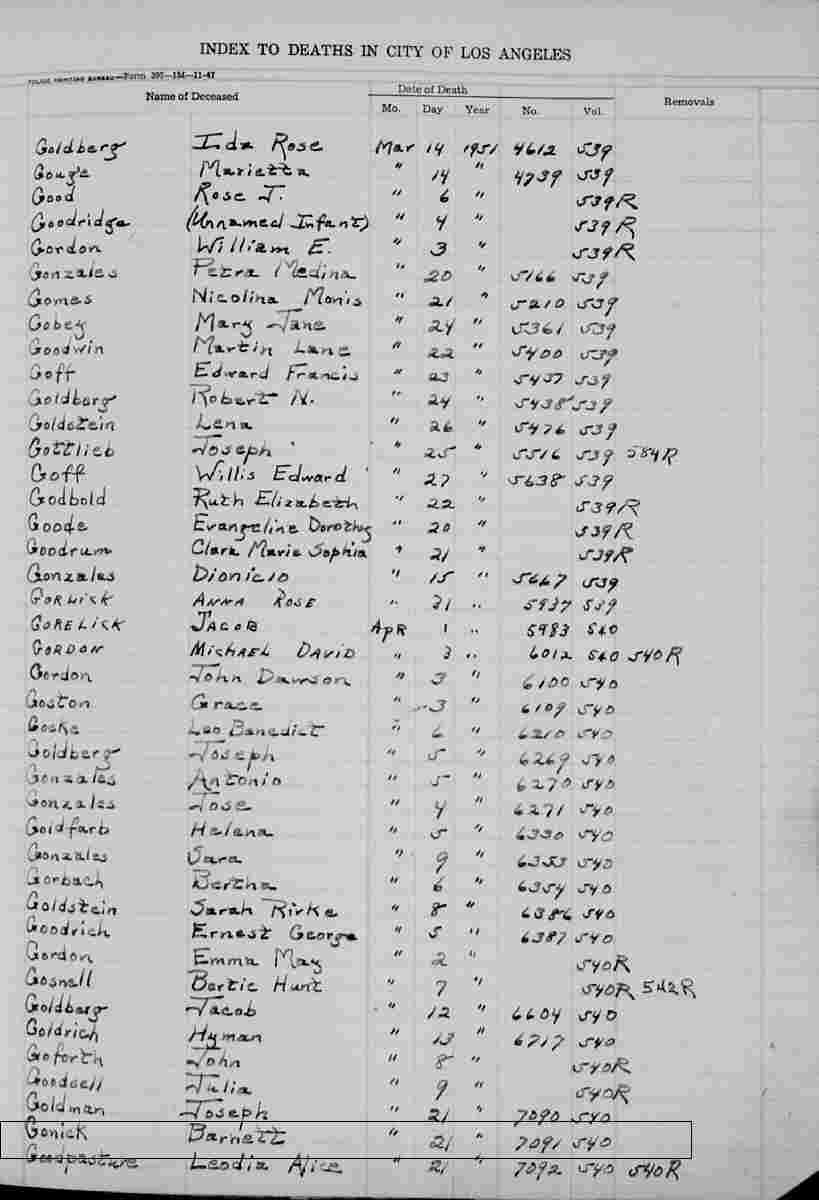 INDEX TO DEATHS IN CITY OF LOS ANGELES
POLICE PRINTING BUREAU—Form 397—1M—11-47
Name of Deceased Date of Death Removals
Mo. Day Year No. Vol.
Goldberg Ida Rose Mar 14 1951 4612 539
Gouge Marietta " 14 " 4739 539
Good Rose J. " 6 " 539R
Goodridge (Unnamed Infant) " 4 " 539R
Gordon William E. " 3 " 539R
Gonzales Petra Medina " 20 " 5166 539
Gomes Nicolina Monis " 21 " 5210 539
Gobey Mary Jane " 24 " 5361 539
Goodwin Martin Lane " 22 " 5400 539
Goff Edward Francis " 23 " 5437 539
Goldberg Robert N. " 24 " 5438 539
Goldstein Lena " 26 " 5476 539
Gottlieb Joseph " 25 " 5516 539 584R
Goff Willis Edward " 27 " 5638 539
Godbold Ruth Elizabeth " 22 " 539R
Goode Evangeline Dorothy " 20 " 539R
Goodrum Clara Marie Sophia " 21 " 539R
Gonzales Dionicio " 15 " 5667 539
GORWICK ANNA ROSE " 31 " 5937 539
GORELICK JACOB APR 1 " 5983 540
GORDON MICHAEL DAVID " 3 " 6012 540 540R
Gordon John Dawson " 3 " 6100 540
Goston Grace " 3 " 6109 540
Goske Leo Benedict " 6 " 6210 540
Goldberg Joseph " 5 " 6269 540
Gonzales Antonio " 5 " 6270 540
Gonzales Jose " 4 " 6271 540
Goldfarb Helena " 5 " 6330 540
Gonzales Sara " 9 " 6353 540
Gorbach Bertha " 6 " 6354 540
Goldstein Sarah Rirke " 8 " 6386 540
Goodrich Ernest George " 5 " 6387 540
Gordon Emma May " 2 " 540R
Gosnell Bertie Hunt " 7 " 540R 542R
Goldberg Jacob " 12 " 6604 540
Goldrich Hyman " 13 " 6717 540
Goforth John " 8 " 540R
Goodsell Julia " 9 " 540R
Goldman Joseph " 21 " 7090 540
Gonick Barnett " 21 " 7091 540
Goodpasture Leodia Alice " 21 " 7092 540 540R